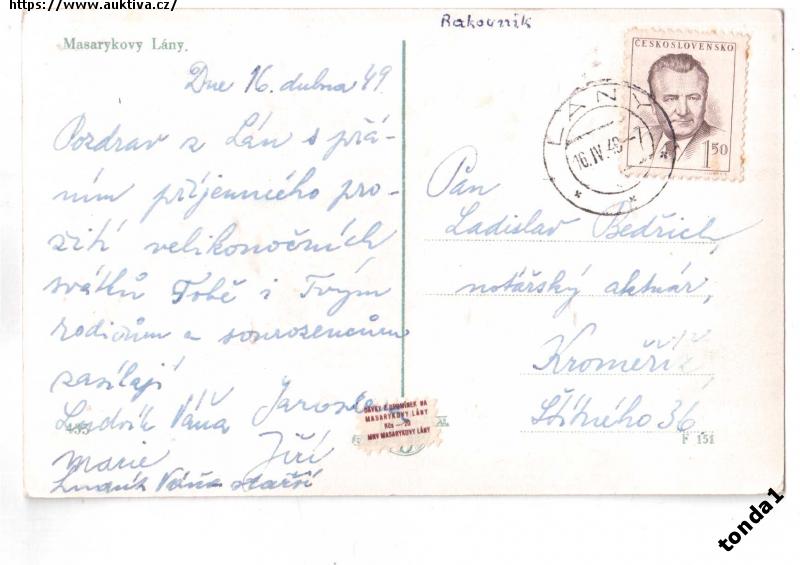 https://www.auktiva.cz/
Rakovník
Masarykovy Lány.
Dne 16. dubna 49.
Pozdrav z Lán s přá-
ním příjemného pro-
žití velikonočních
svátků Tobě i Tvým
rodičům a sourozencům
zasílají
Ludvík Váňa Jaroslav
Marie Jiří
Ludvík Váňa starší
ČESKOSLOVENSKO
1 50
LÁNY
16.IV.49-7
Pán
Ladislav Bedřich,
notářský aktuár,
Kroměříž
Štítného 36
MASARYKOVY LÁNY
Kčs -·20
MNV MASARYKOVY LÁNY
F 151
tonda1